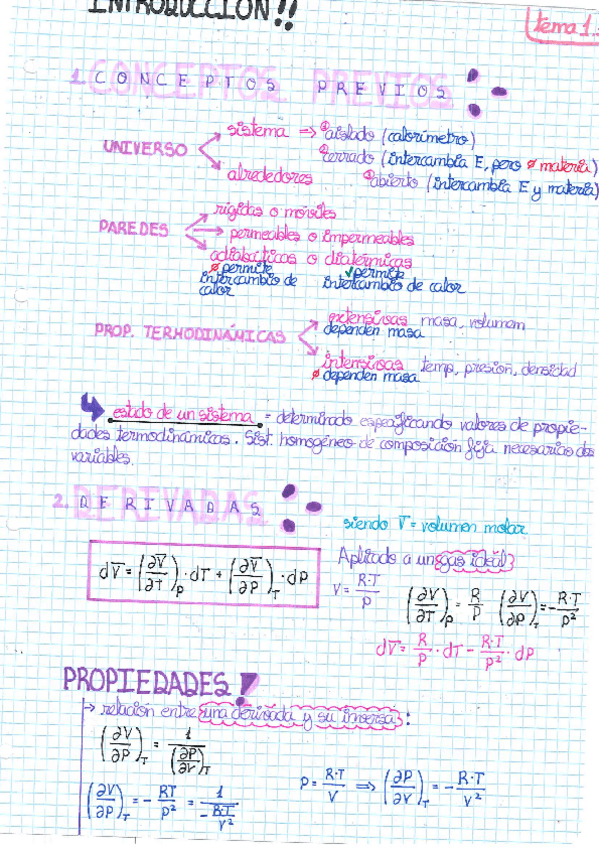 INTRODUCCIÓN!!
tema 1.
1. CONCEPTOS PREVIOS
UNIVERSO
sistema ⇒ ① aislado (calorímetro)
② cerrado (intercambia E, pero ∅ materia)
alrededores ③ abierto (intercambia E y materia)
PAREDES
rígidas o móviles
permeables o impermeables
adiabáticas o diatérmicas
∅ permite intercambio de calor
✓ permite intercambio de calor
PROP. TERMODINÁMICAS
extensivas masa, volumen
dependen masa
intensivas temp, presion, densidad
∅ dependen masa
estado de un sistema = determinado especificando valores de propie-
dades termodinámicas. Sist. homogéneo de composición fija necesarico dos
variables.
2. DERIVADAS
siendo V̅ = volumen molar
dV̅ = (∂V̅/∂T)_P · dT + (∂V̅/∂P)_T · dP
Aplicado a un gas ideal
V = R·T/P (∂V/∂T)_P = R/P (∂V/∂P)_T = - R·T/P²
dV̅ = R/P · dT - R·T/P² · dP
PROPIEDADES!
→ relación entre una derivada y su inversa:
(∂V/∂P)_T = 1/(∂P/∂V)_T
(∂V/∂P)_T = - RT/P² = 1/(- R·T/V²)
P = R·T/V ⇒ (∂P/∂V)_T = - R·T/V²